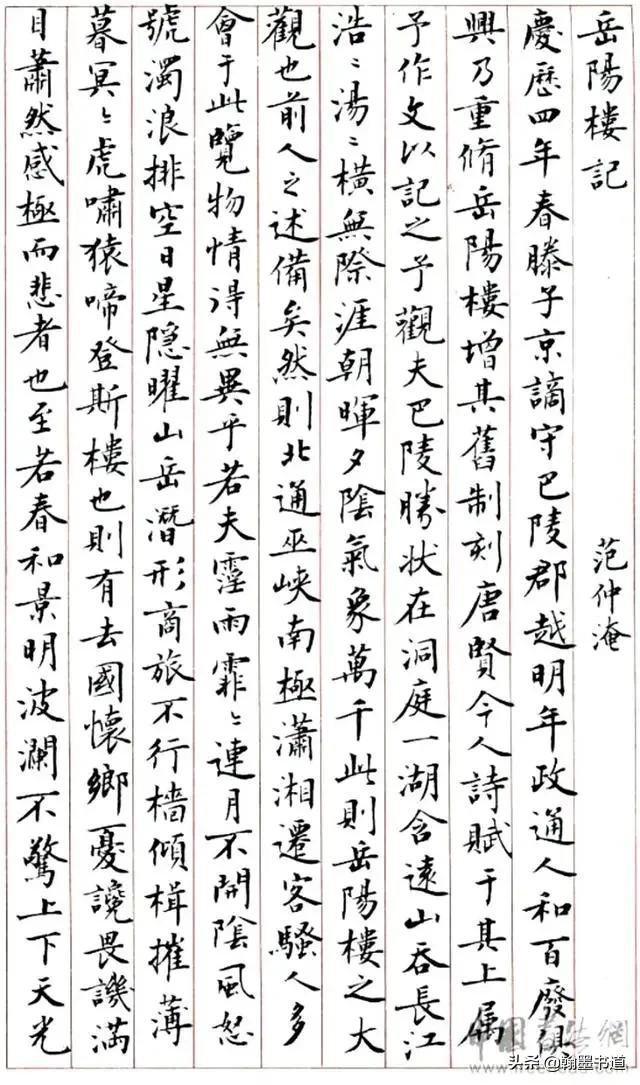 岳陽樓記 范仲淹
慶歷四年春滕子京謫守巴陵郡越明年政通人和百廢俱
興乃重脩岳陽樓增其舊制刻唐賢今人詩賦于其上屬
予作文以記之予觀夫巴陵勝狀在洞庭一湖含遠山吞長江
浩〻湯〻橫無際涯朝暉夕陰氣象萬千此則岳陽樓之大
觀也前人之述備矣然則北通巫峽南極瀟湘遷客騷人多
會于此覽物情得無異乎若夫霪雨霏〻連月不開陰風怒
號濁浪排空日星隱曜山岳潛形商旅不行檣傾楫摧薄
暮冥〻虎嘯猿啼登斯樓也則有去國懷鄉憂讒畏譏滿
目蕭然感極而悲者也至若春和景明波瀾不驚上下天光
头条 @翰墨书道